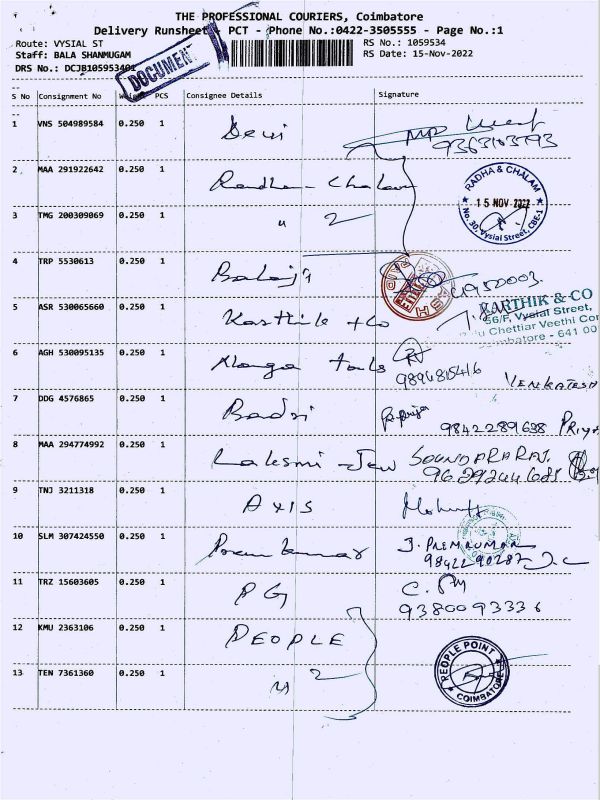 THE PROFESSIONAL COURIERS, Coimbatore
Delivery Runsheet - PCT - Phone No.:0422-3505555 - Page No.:1
Route: VYSIAL ST
RS No.: 1059534
Staff: BALA SHANMUGAM
RS Date: 15-Nov-2022
DRS No.: DCJB105953401
DOCUMENT
S No Consignment No Weight PCS Consignee Details Signature
1 VNS 504989584 0.250 1 Devi
2 MAA 291922642 0.250 1 Radha - Chalam
RADHA & CHALAM
15 NOV 2022
No. 30, Vysial Street, CBE-1
3 TMG 200309069 0.250 1 " 2
4 TRP 5530613 0.250 1 Balaji
5 ASR 530065660 0.250 1 Karthik + Co
KARTHIK & CO
56/F, Vysial Street,
Chettiar Veethi
Coimbatore - 641 00
6 AGH 530095135 0.250 1 9894815416 VENKATESH
7 DDG 4576865 0.250 1 Badri 9842289688 PRIYA
8 MAA 294774992 0.250 1 Laksmi - Jew SOUNDARARAJ.
9629244685
9 TNJ 3211318 0.250 1 AXIS
10 SLM 307424550 0.250 1 Prem kumar J. PREMKUMAR
9842290287
11 TRZ 15603605 0.250 1 PG
9380093336
12 KMU 2363106 0.250 1 PEOPLE
PEOPLE POINT
COIMBATORE
13 TEN 7361360 0.250 1 " 2